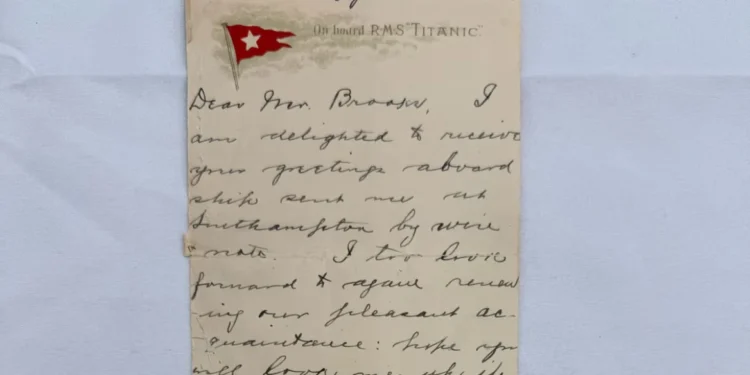 On board R.M.S "TITANIC".
Dear Mr. Brooks, I
am delighted to receive
your greetings aboard
ship sent me at
Southampton by wire
note. I too look
forward to again renew
-ing our pleasant ac-
quaintance: hope you
will me while